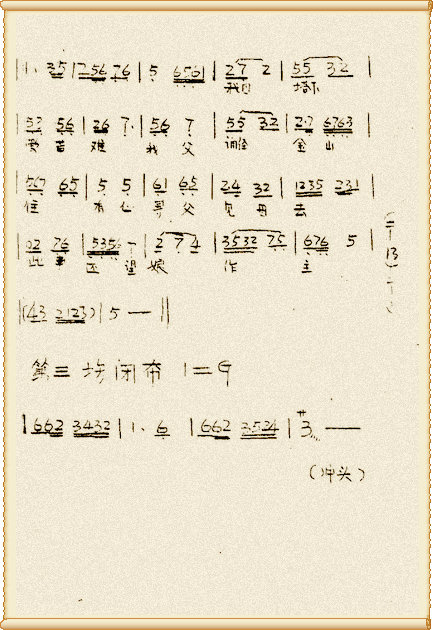 |1. 35|2 56 76|5 6561|2 7 2|55 32|
我 塔下
|53 56|26 7.|56 7|55 32|2.7 6763|
受 苦 难 我 父 金 山
|567 65|5 5|61 65|24 32|1235 231|
住 父 见 母 去
|02 76|5356 1|2 7 4|3532 75|676 5|
此 事 还 望 娘 作 主
(43 2123)|5 —‖
第三场闭布 1=G
|662 3432|1. 6|662 3524|#3 —
(冲头)